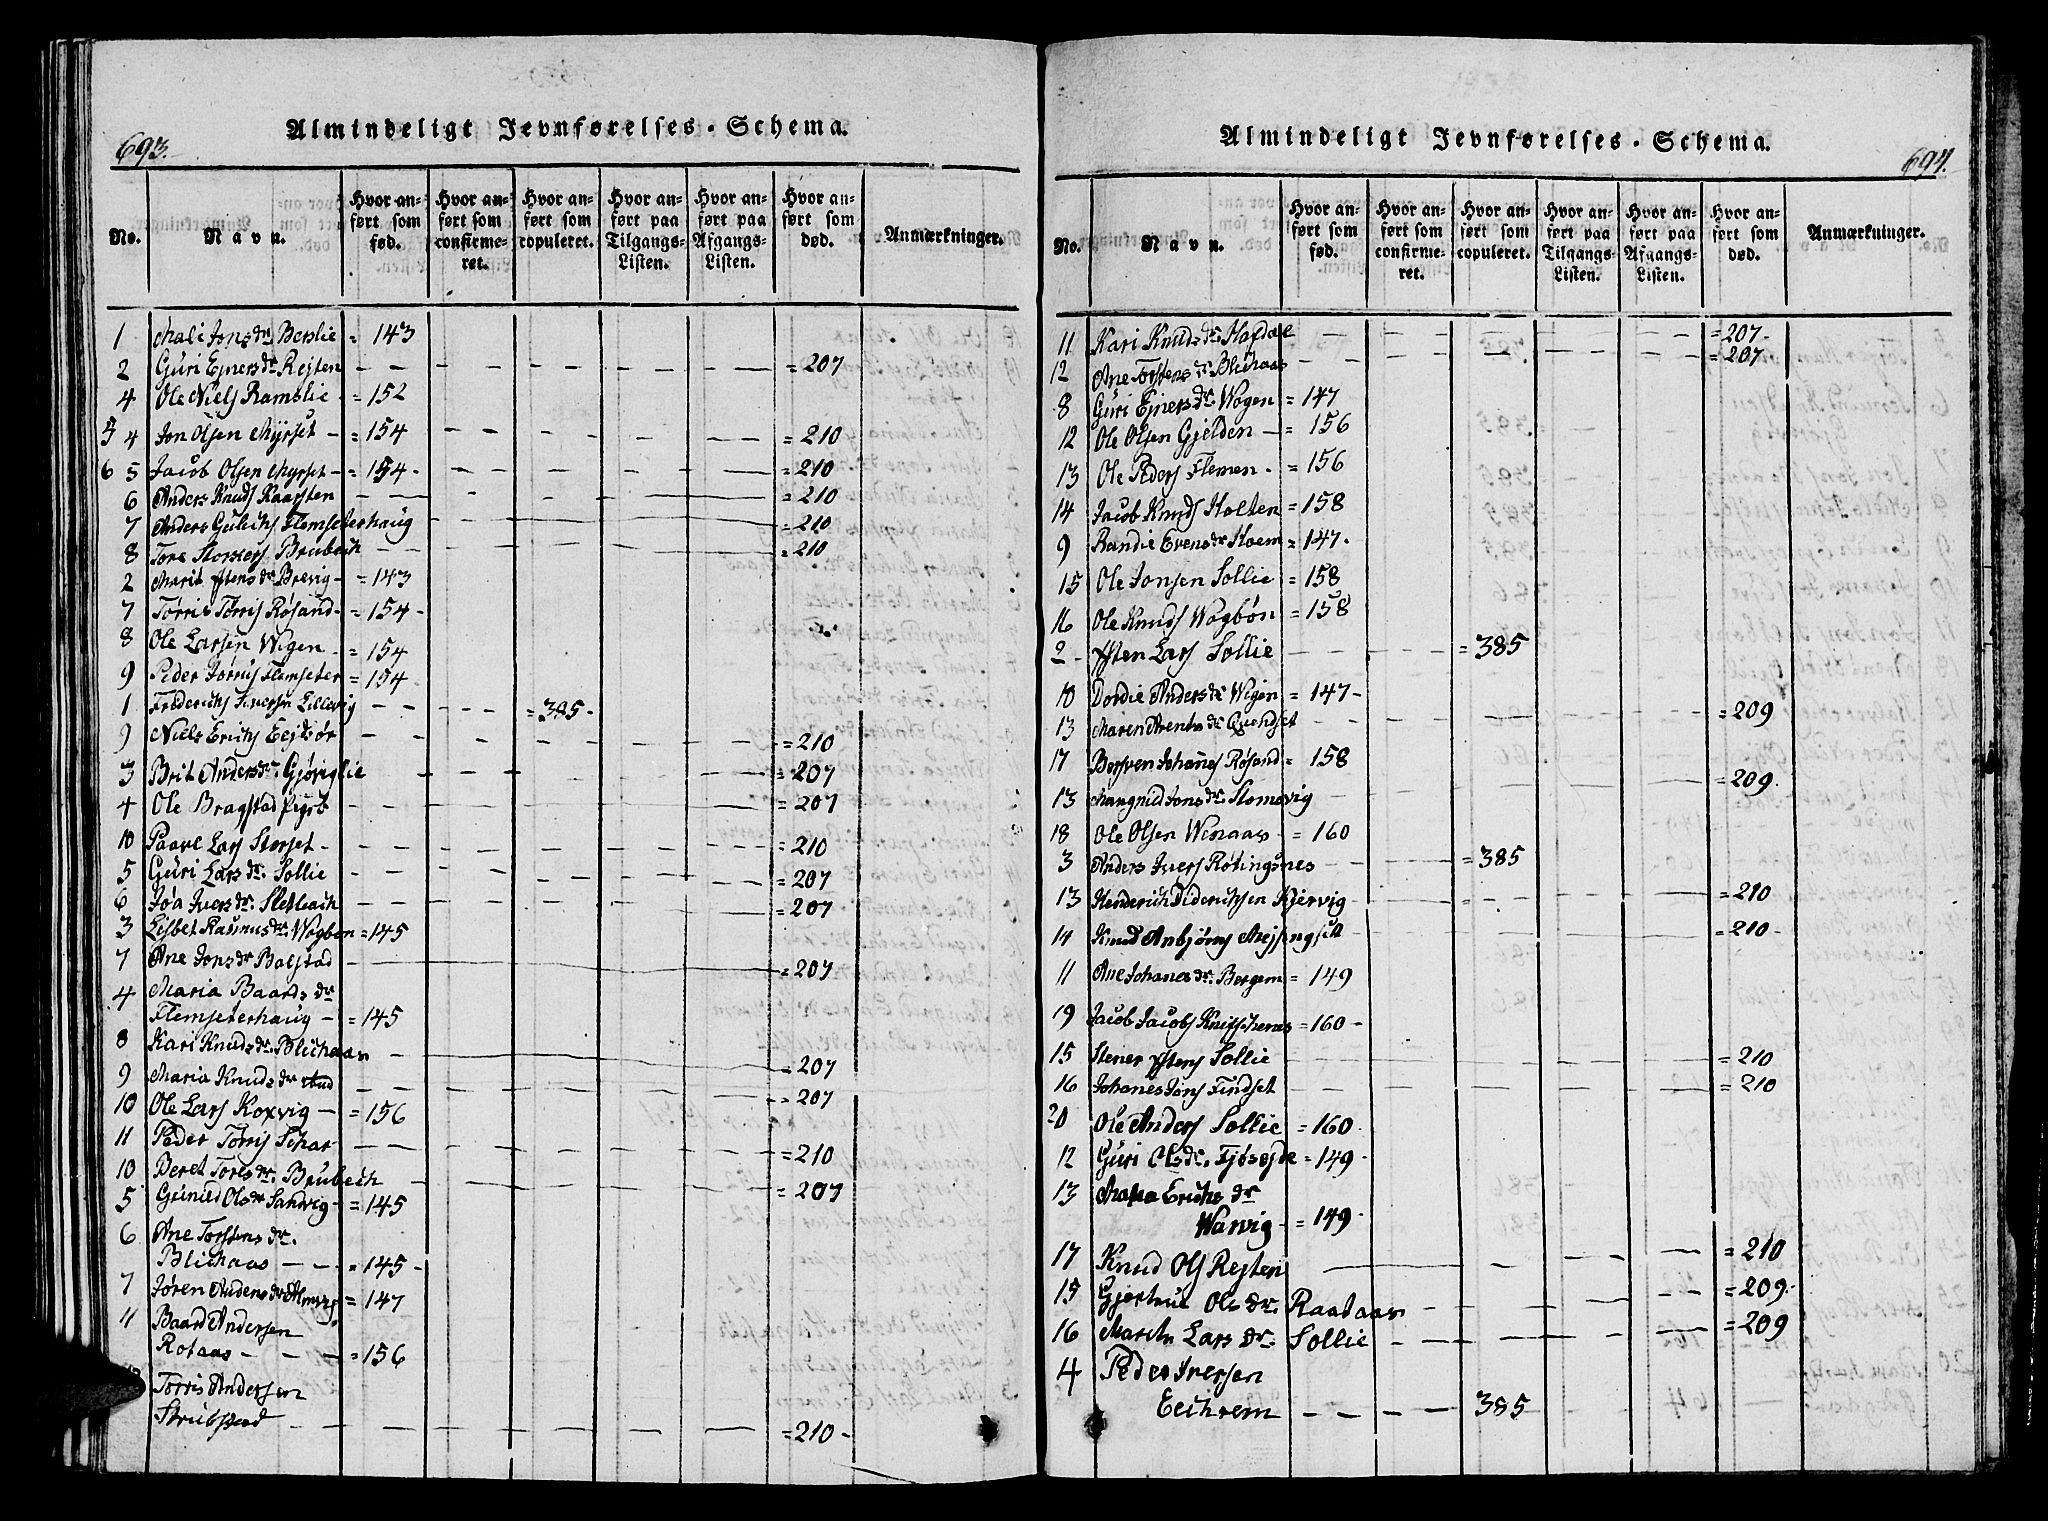 Almindeligt Jevnførelses-Schema.
693.
No. Navn. Hvor anført som fød. Hvor anført som confirmeret. Hvor anført som copuleret. Hvor anført paa Tilgangs-Listen. Hvor anført paa Afgangs-Listen. Hvor anført som død. Anmærkninger.
1 Mali Jonsdr. Berslie = 143
2 Guri Ejnersdr Rejten - - - - - = 207
4 Ole Niels Ramslie = 152
5 4 Jon Olsen Myrset - = 154 - - - - = 210
6 5 Jacob Olsen Myrset - = 154 - - - - - = 210
6 Anders Knuds Kaarsten - - - - - = 210
7 Anders Gulichs Flemseterhaug - - - - = 210
8 Tore Brubech - - - - - = 210
2 Marit Ystensdr Brevig - = 143
7 Tørris Tørris Røsand - = 154 -
8 Ole Larsen Wigen - = 154
9 Peder Flemseter = 154
1 Friderichs Iversen Lillevig - - - = 385 -
9 Niels Erichs - - - - - = 210
3 Brit Andersdr. Gjøviglie - - - - = 207
4 Ole Bragstad - - - - - = 207
10 Paavel Lars Storset - - - - - = 210
5 Guri Larsdr. Sollie - - - - - = 207
6 Joa Iversdr. - - - - - = 207
3 Lisbet Rasmusdr. Wogbøn = 145
7 Ane Jonsdr Bolstad - - - - - = 207
4 Maria Baardsdr
Flemseterhaug - = 145
8 Kari Knudsdr. Blichaas - - - - - = 207
9 Maria Knudsdr ibid - - - - - = 207
10 Ole Lars Koxvig - = 156
11 Peder Tørris Schar - - - - - = 210
10 Beret Toresdr. Brubech - - - - - = 207
5 Gunild Olsdr Sandvig - = 145
6 Ane Torstensdr.
Blichaas - - = 145 -
7 Jøren Andersdr = 147
11 Baard Andersen
Rotaas - - - = 156
Torris Andersen
- - - - - = 210 -
Almindeligt Jevnførelses-Schema.
694.
No. Navn. Hvor anført som fød. Hvor anført som confirmeret. Hvor anført som copuleret. Hvor anført paa Tilgangs-Listen. Hvor anført paa Afgangs-Listen. Hvor anført som død. Anmærkninger.
11 Kari Knudsdr. Hafdal - - - - - = 207 -
12 Ane Torstensdr Blichaas - - - - - = 207
8 Guri Ejnersdr. Wogen = 147
12 Ole Olsen Gjelden - = 156
13 Ole Peders Flemen - = 156
14 Jacob Knuds Holten = 158
9 Randie Evensdr Hoem = 147 -
15 Ole Jonsen Sollie = 158
16 Ole Knuds Wogbøn = 158
2 - Ysten Lars Sollie - - - = 385
10 Dordie Andersdr Wigen = 147 -
13 Maren Arentsdr - - - - - = 209
17 Bersven Johanes Røsand = 158
13 Jonsdr. Stomsvig - - - - - = 209
18 Ole Olsen Wenaas - = 160
3 Anders Ivers Røtingsnes - - - = 385
13 Henderich Diderichsen Kjervig - - - - = 210
14 Knud - - - - - = 210 -
11 Ane Johanesdr. Bergem = 149
19 Jacob Jacobs = 160 -
15 Stener Ystens Sollie - - - - - = 210
16 Johanes Jons Findset - - - - - = 210
20 Ole Anders Sollie = 160 -
12 Guri Olsdr. = 149 -
13 Erichsdr
Warvig - = 149 -
17 Knud Ols Rejten - - - - - = 210
15 Gjertrud Olsdr. Raataas - - - - = 209 -
16 Larsdr. Sollie - - - - = 209
4 Peder Iversen
Eechrem - - - = 385